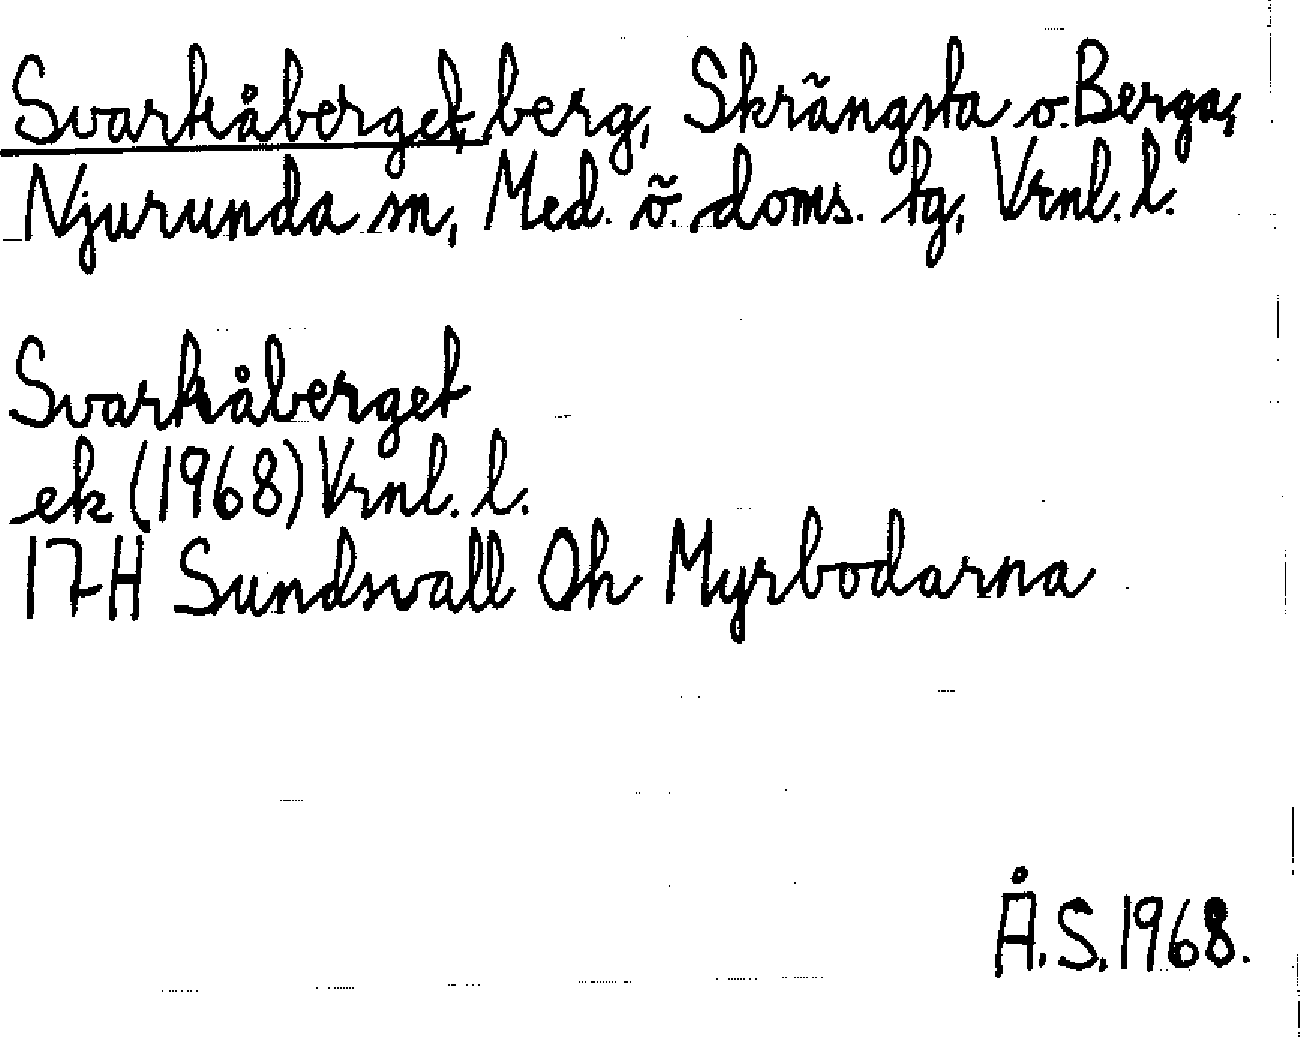 Svarkåberget, berg, Skrängsta o. Berga,
Njurunda sn, Med. ö. doms. tg, Vrnl. l.
Svarkåberget
ek (1968) Vrnl. l.
17H Sundsvall Oh Myrbodarna
Å.S. 1968.